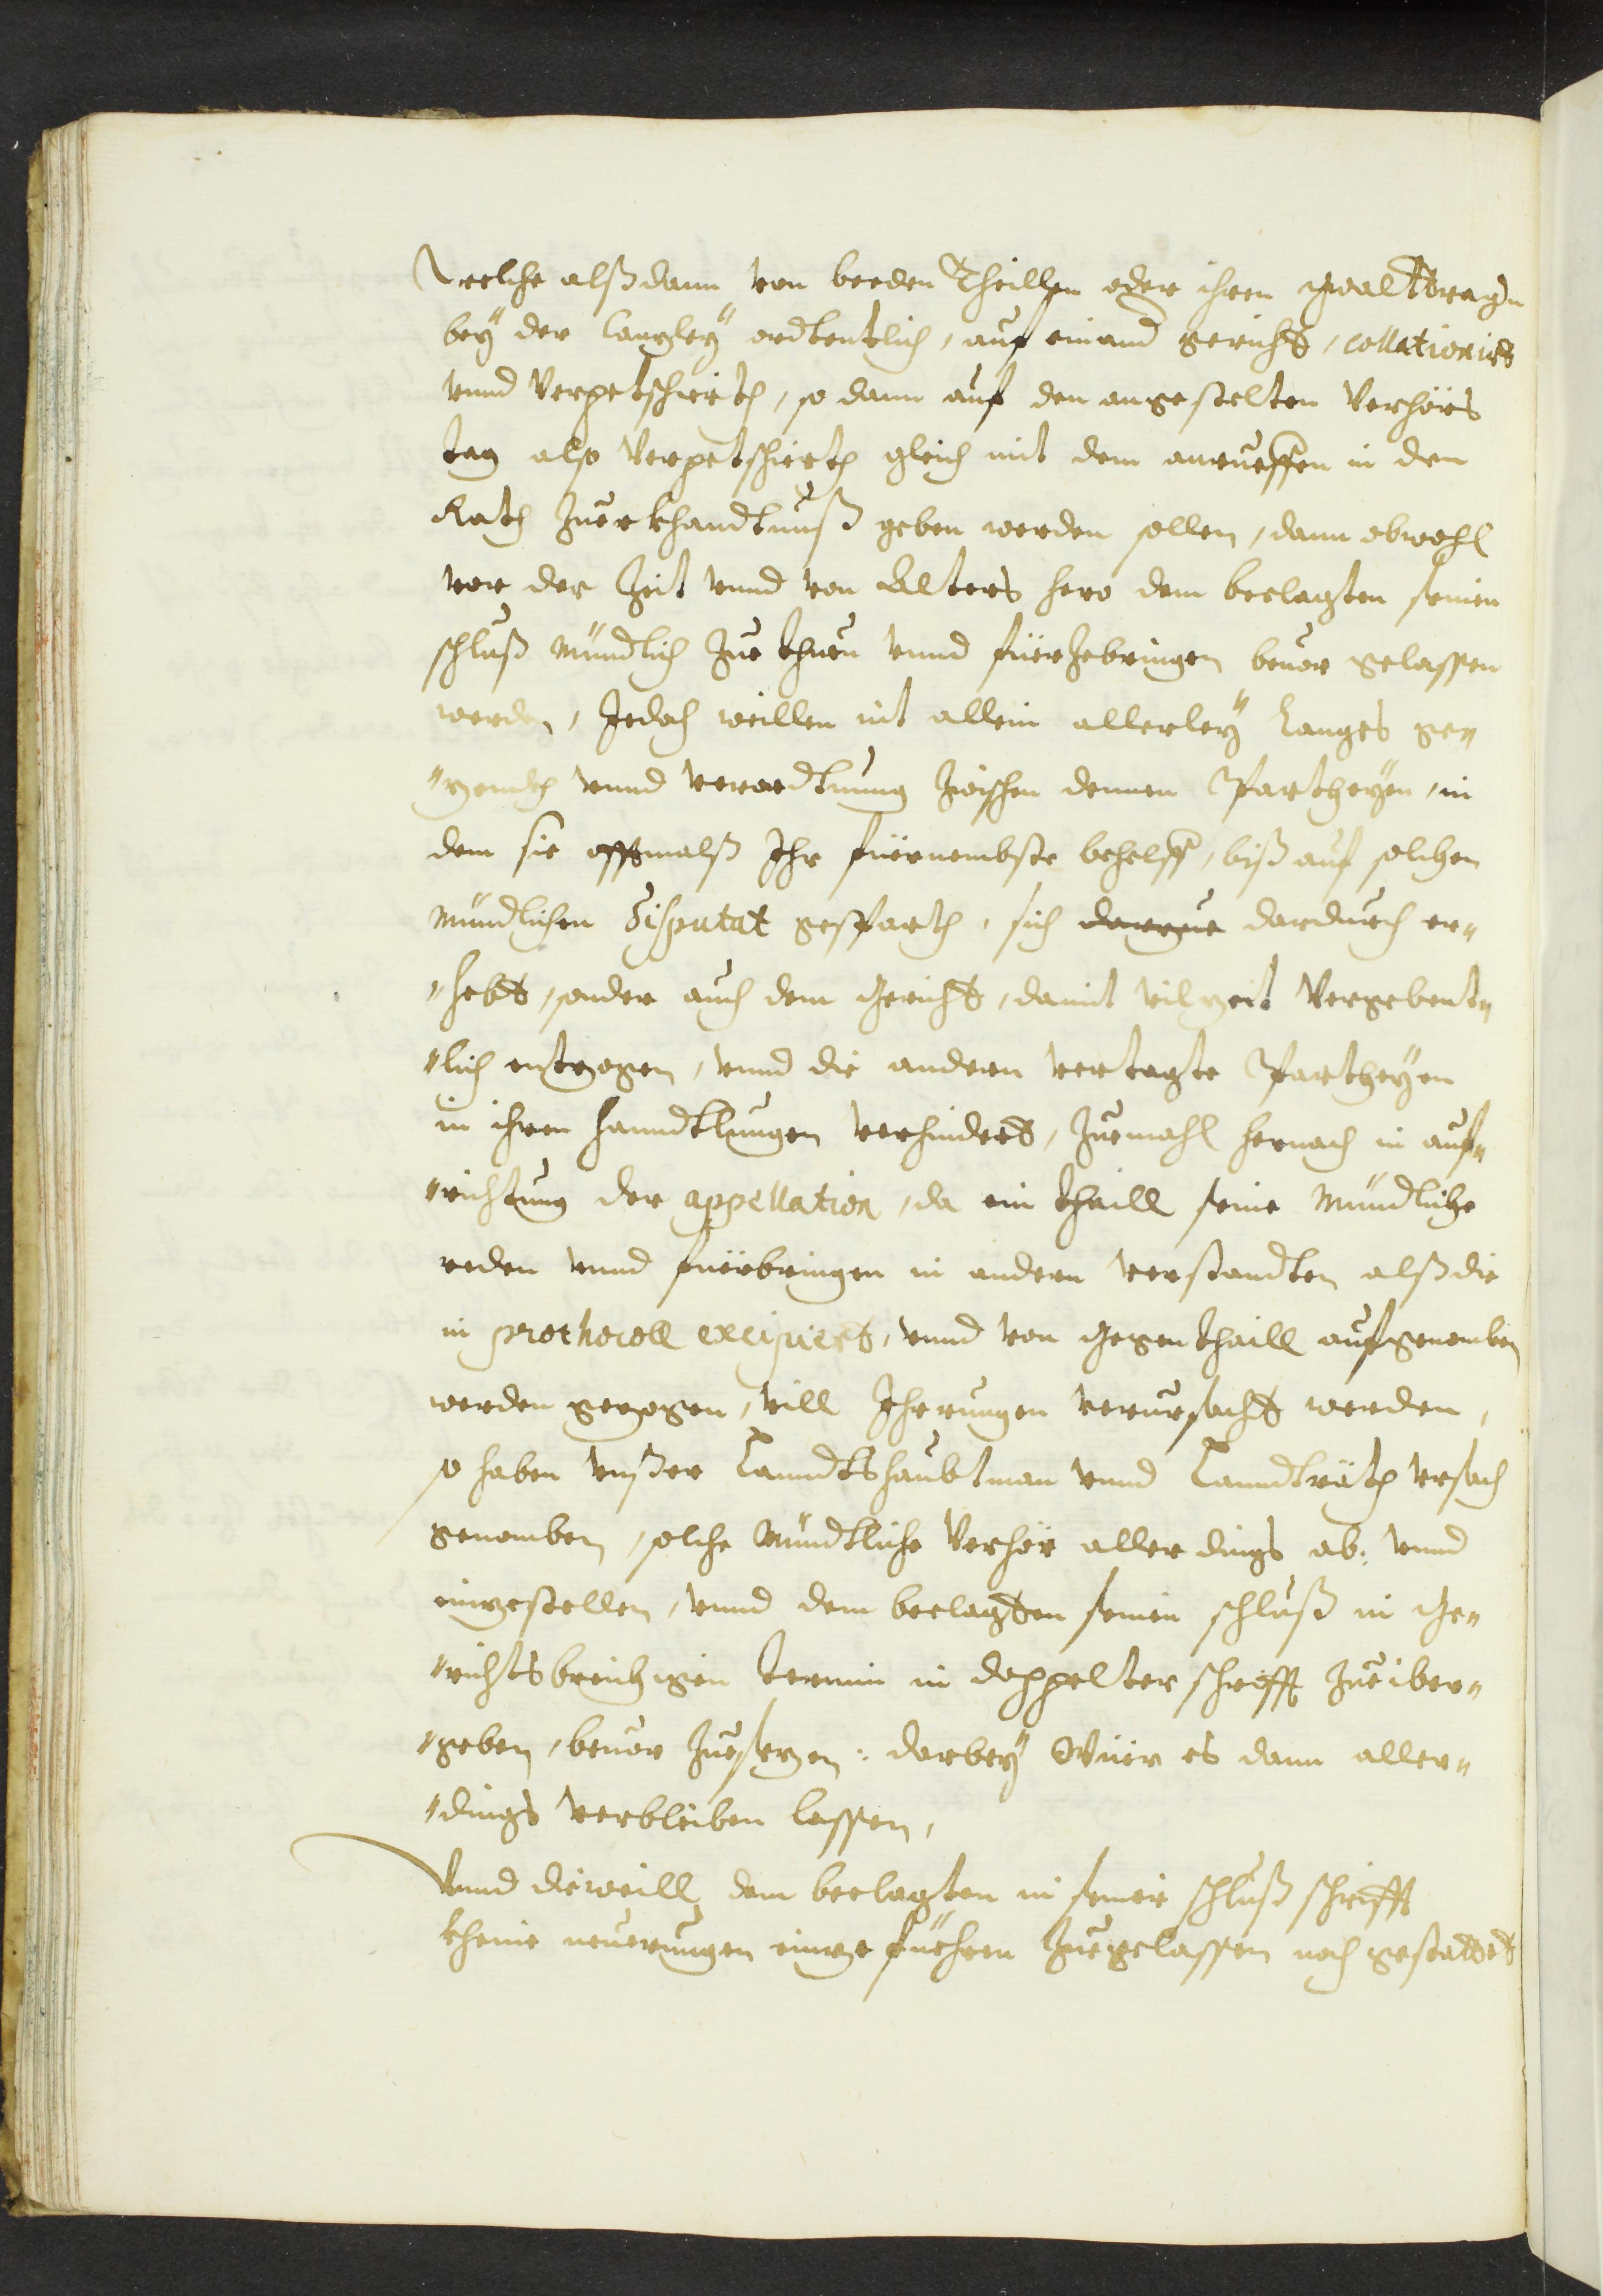 welche alßdann von beeden Theillen oder ihren gwalttragern
bey der Canzley ordtentlich, auf einand gericht, collationirt
vnnd verpetschierth, so dann auf den angestelten Verhörs
tag also verpetschierth gleich mit dem anrueffen in den
Rath zuerkhandtnuß geben werden sollen, dann obwohl
vor der Zeit vnnd von Alters hero dem beclagten seinen
schluß mündlich zue thuen vnnd fürzebringen beuor gelassen
worden, Jedoch weillen nit allein allerley Langes ge„
„zenckh vnnd verordtnung zwischen dennen Partheyen, in
dem sie offtmalß Ihr fürnembste behelff, biß auf solchen
mündlichen Disputat gesparth, sich darzue dardurch er„
„hebt, sonder auch dem Gericht, damit vil zeit vergebent„
„lich entzogen, vnnd die andern vertagte Partheyen
in ihren hanndtlungen verhindert, zuemahl hernach in auf„
„richtung der appellation, da ein thaill seine Mündliche
reden vnnd fürbringen in andern verstandten alß die
in prothocoll excipiert, vnnd von gegenthaill aufgenomben
worden gezogen, vill Ihrrungen verursacht werden,
so haben vnßer Lanndtshaubtman vnnd Lanndträth vrsach
genomben, solche Mündtliche Verhör aller dings ab: vnnd
einzestellen, vnnd dem beclagten seinen schluß in ge„
„richtsbreichigen termin in doppelter schrifft zueiber„
„geben, beuor zuesezen: darbey Wüer es dann aller„
„dings verbleiben lassen,
Vnnd dieweill dem beclagten in seiner schluß schrifft
kheine neuerungen einzeführen zuegelassen noch gestattet